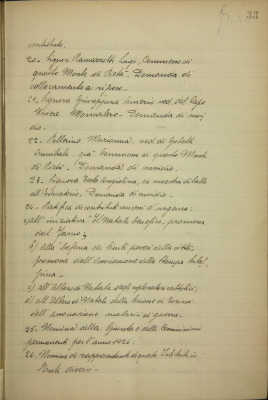 33
contributo.
20. Signor Ramazzotti Luigi, Commesso di
questo Monte di Pietà - Domanda di
collocamento a riposo.
21. Signora Giuseppina ved. del Capo
Usciere - Domanda di sussi-
dio.
22. Pellerino Marianna, ved. di
Annibale, già Commesso di questo Monte
di Pietà. Domanda di sussidio.
23. Signora Angiolina, ex maestra di ballo
all' Domanda di sussidio.
24. Ratifica di contributi annui d'urgenza:
a) all'iniziativa "Il Natale benefico, promossa
dal
b) alla befana dei bimbi poveri della città,
promossa dall'Associazione della Stampa Subal-
pina -
c) all'Albero di Natale degli esploratori cattolici;
d) all'Albero di Natale della Sezione di Torino
dell'Associazione mutilati di guerra.
25. Nomina della Giunta e delle Commissioni
permanenti per l'anno 1926.
26. Nomina di rappresentante di questo Istituto in
Enti diversi -